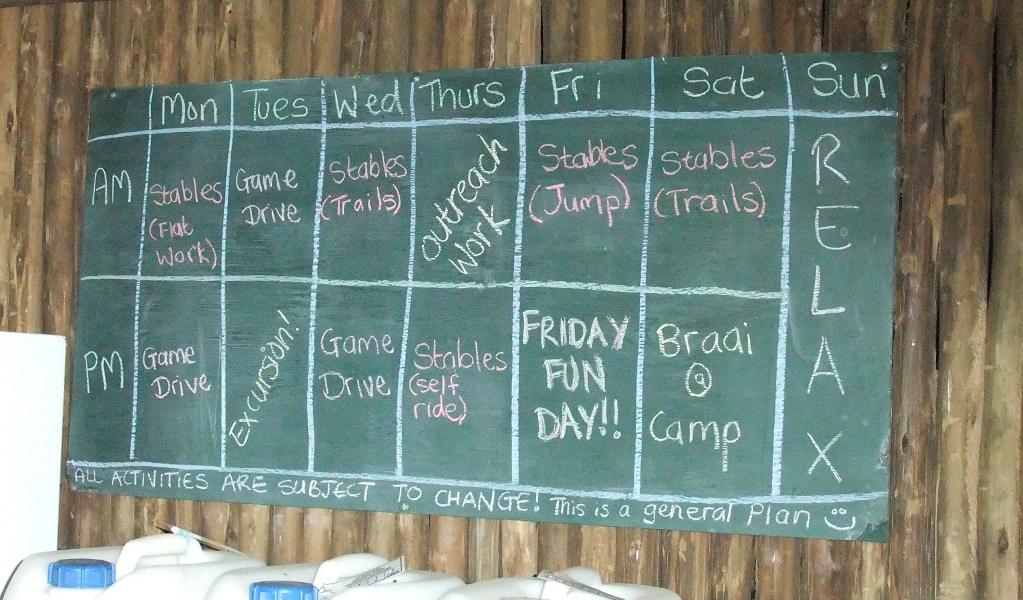 Mon Tues Wed Thurs Fri Sat Sun
AM
Stables
(Flat
Work)
Game
Drive
Stables
(Trails)
Outreach
Work
Stables
(Jump)
Stables
(Trails)
RELAX
PM
Game
Drive
Excursion!
Game
Drive
Stables
(self
ride)
FRIDAY
FUN
DAY!!
Braai
@
Camp
ALL ACTIVITIES ARE SUBJECT TO CHANGE! This is a general Plan